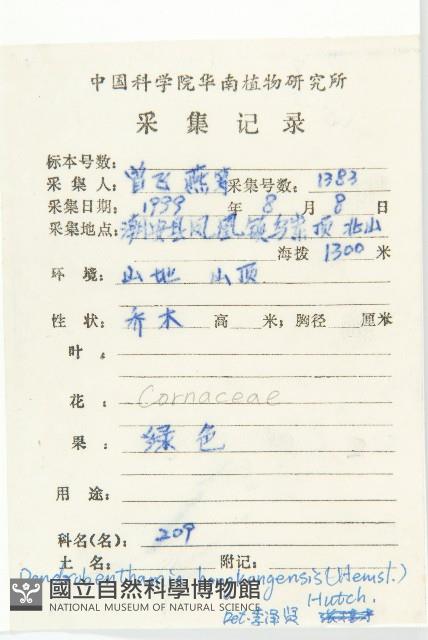 中国科学院华南植物研究所
采集记录
标本号数:
采集人: 曾飞燕等 采集号数: 1383
采集日期: 1999 年 8 月 8 日
采集地点: 潮安县凤凰镇乌岽顶北山
海拨 1300 米
环境: 山地 山顶
性状: 乔木 高 米; 胸径 厘米
叶:
花: Cornaceae
果: 绿色
用途:
科名(名): 209
土名: 附记:
Dendrobenthamia hongkongensis (Hemsl.)
Hutch.
Det. 李泽贤
國立自然科學博物館
NATIONAL MUSEUM OF NATURAL SCIENCE